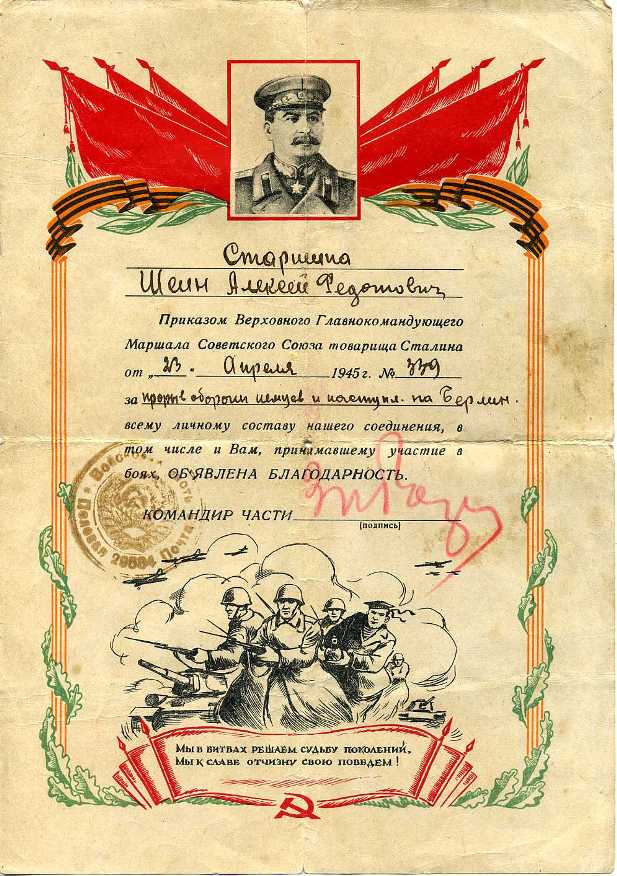 Старшина
Шеин Алексей Федотович
Приказом Верховного Главнокомандующего
Маршала Советского Союза товарища Сталина
от „23" Апреля 1945 г. № 339
за прорыв обороны немцев и наступл. на Берлин.
всему личному составу нашего соединения, в
том числе и Вам, принимавшему участие в
боях, ОБ'ЯВЛЕНА БЛАГОДАРНОСТЬ.
КОМАНДИР ЧАСТИ
(подпись)
Полевая Почта 29584
МЫ В БИТВАХ РЕШАЕМ СУДЬБУ ПОКОЛЕНИЙ,
МЫ К СЛАВЕ ОТЧИЗНУ СВОЮ ПОВЕДЕМ!